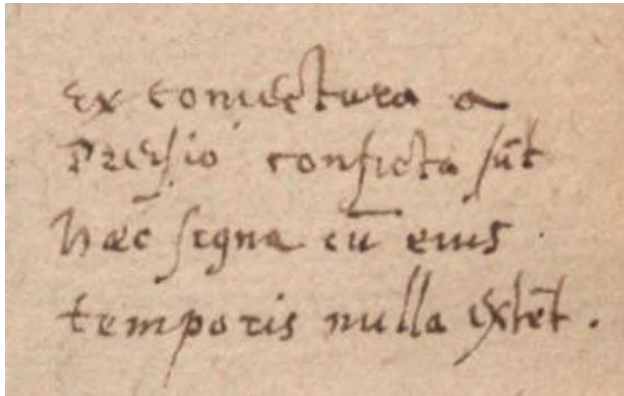 ex coniectura a
conficta sūt
haec signa cū eius
temporis nulla extēt.